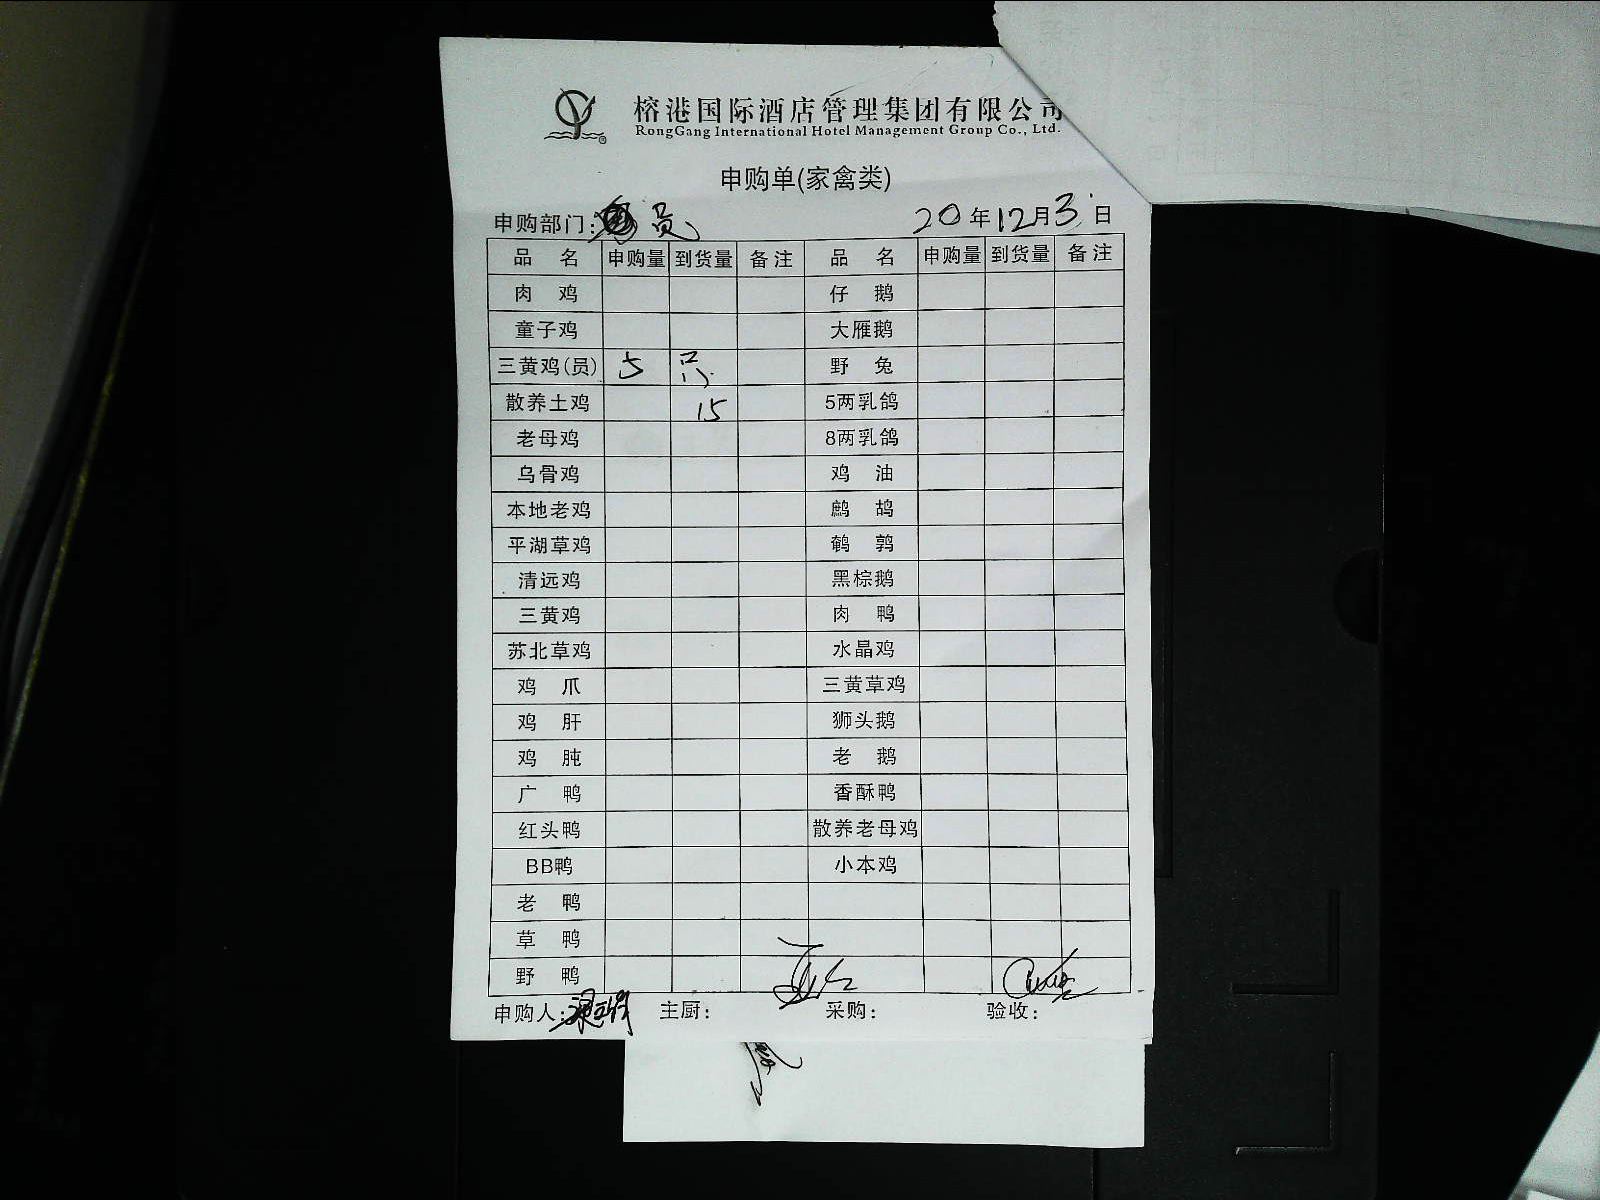 榕港国际酒店管理集团有限公司
RongGang International Hotel Management Group Co., Ltd.
申购单(家禽类)
申购部门: 员 20年12月3日
品 名 申购量 到货量 备注 品 名 申购量 到货量 备注
肉 鸡 仔 鹅
童子鸡 大雁鹅
三黄鸡(员) 5 只 野 兔
散养土鸡 15 5两乳鸽
老母鸡 8两乳鸽
乌骨鸡 鸡 油
本地老鸡 鹧 鸪
平湖草鸡 鹌 鹑
清远鸡 黑棕鹅
三黄鸡 肉 鸭
苏北草鸡 水晶鸡
鸡 爪 三黄草鸡
鸡 肝 狮头鹅
鸡 肫 老 鹅
广 鸭 香酥鸭
红头鸭 散养老母鸡
BB鸭 小本鸡
老 鸭
草 鸭
野 鸭
申购人: 主厨: 采购: 验收: